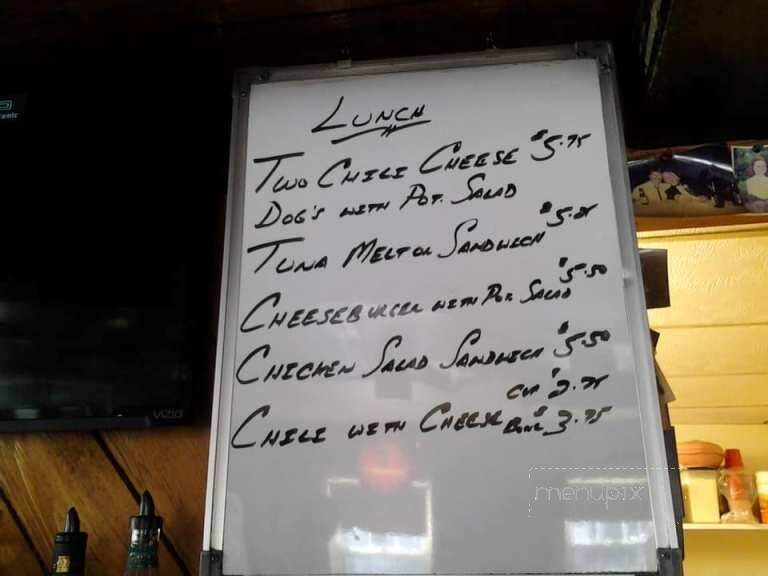 LUNCH
TWO CHILI CHEESE $5.75
DOG'S WITH POT. SALAD
TUNA MELT OR SANDWICH $5.25
CHEESEBURGER WITH POT. SALAD $5.50
CHICKEN SALAD SANDWICH $5.50
CUP $2.75
CHILI WITH CHEESE BOWL $3.75
VIZIO
menupix